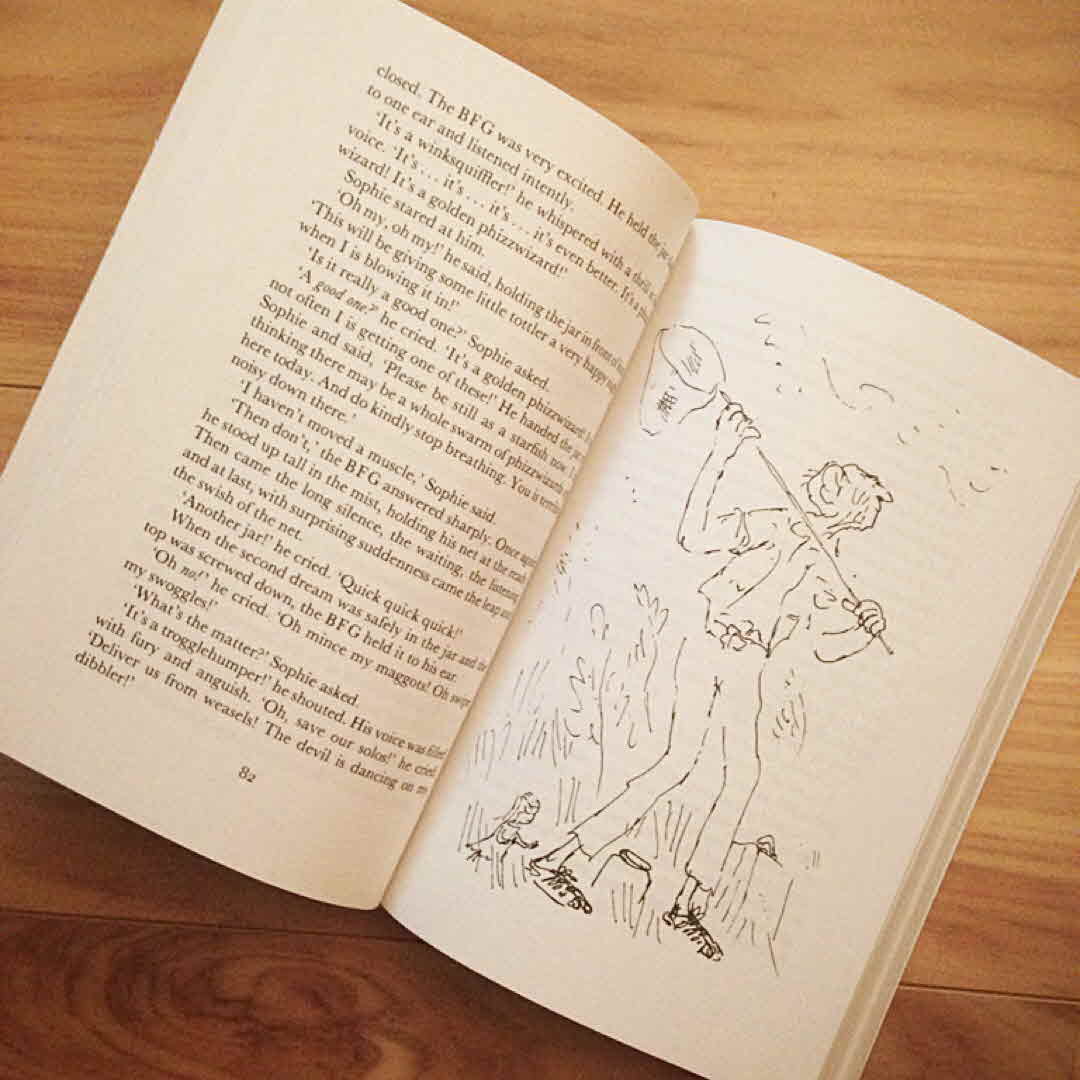 closed. The BFG was very excited. He held the jar
to one ear and listened intently.
‘It’s a winksquiffler!’ he whispered with a thrill
voice. ‘It’s . . . it’s . . . it’s . . . it’s even better. It’s a
wizard! It’s a golden phizzwizard!’
Sophie stared at him.
‘Oh my, oh my!’ he said, holding the jar in front of
‘This will be giving some little tottler a very happy
when I is blowing it in!’
‘Is it really a good one?’ Sophie asked.
‘A good one?’ he cried. ‘It’s a golden phizzwizard!
not often I is getting one of these!’ He handed the
Sophie and said. ‘Please be still as a starfish now
thinking there may be a whole swarm of phizzwizards
here today. And do kindly stop breathing. You is
noisy down there.’
‘I haven’t moved a muscle,’ Sophie said.
‘Then don’t,’ the BFG answered sharply. Once again
he stood up tall in the mist, holding his net at the ready.
Then came the long silence, the waiting, the listening,
and at last, with surprising suddenness came the leap and
the swish of the net.
‘Another jar!’ he cried. ‘Quick quick quick!’
When the second dream was safely in the jar and the
top was screwed down, the BFG held it to his ear.
‘Oh no!’ he cried. ‘Oh mince my maggots! Oh swipe
my swoggles!’
‘What’s the matter?’ Sophie asked.
‘It’s a trogglehumper!’ he shouted. His voice was filled
with fury and anguish. ‘Oh, save our solos!’ he cried.
‘Deliver us from weasels! The devil is dancing on my
dibbler!’
82